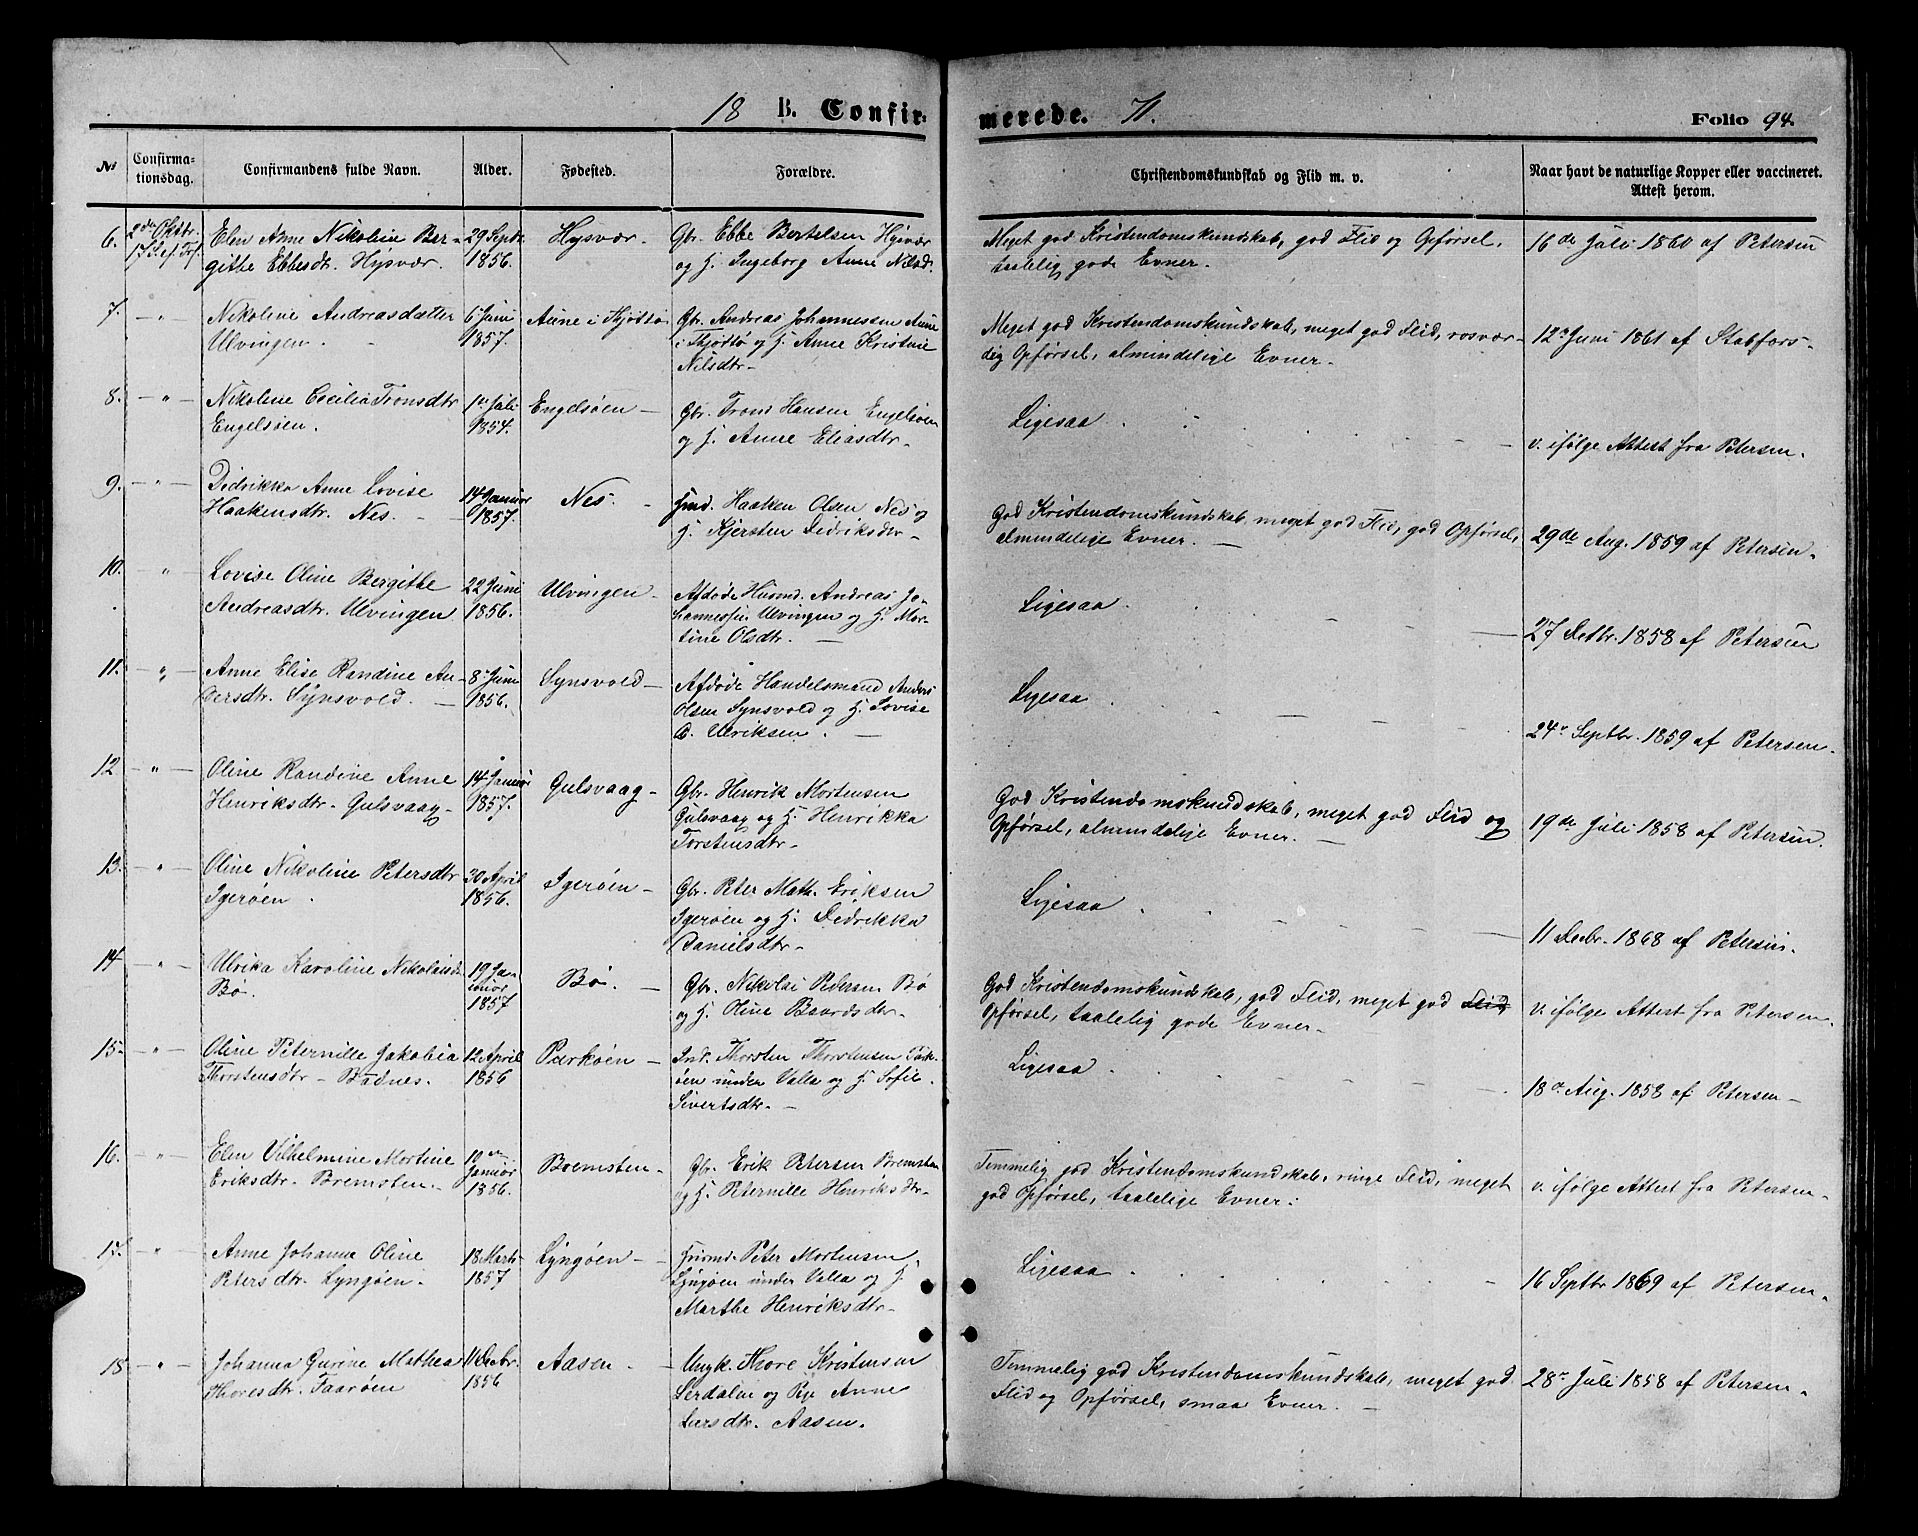 18 B. Confirmerede. 71. Folio 94.
No Confirmationsdag. Confirmandens fulde Navn. Alder. Fødested. Forældre. Christendomskundskab og Flid m. v. Naar havt de naturlige Kopper eller vaccineret. Attest herom.
6. 2den Oktbr. Elen Anne Nikoline Ber- 29 Septr. Hysvær. Gbr. Ebbe Bertelsen Hysvær Meget god Kristendomskundskab, god Flid og Opførsel, 16de Juli 1860 af Petersen
gitte Ebbesdtr. Hysvær. 1856. og H. Ingeborg Anne Nilsd. taalelig gode Evner.
7. " Nikoline Andreasdatter 6 Juni Aune i Thjøttø Gbr. Andreas Johannessen Aune Meget god Kristendomskundskab, meget god Flid, rosvær- 12 Juni 1861 af Stabfors
Ulvingen. 1857. i Thjøttø og H. Anne Kristine dig Opførsel, almindelige Evner.
Nilsdtr.
8. " Nikoline Cecilia Tronsdtr 1 Juli Engelsøen Gbr. Tron Hansen Engelsøen Ligesaa
Engelsøen. 1854. og H. Anne Eliasdtr. v. ifølge Attest fra Petersen.
9. " Didrikka Anne Lovise 14 Januar Nes. Hmd. Haaken Olsen Nes og God Kristendomskundskab, meget god Flid, god Opførsel,
Haakensdtr. Nes. 1857. H. Kjersten Dedriksdtr. almindelige Evner. 29de Aug. 1859 af Petersen.
10. " Lovise Oline Bergithe 22 Juni Ulvingen Afdøde Husmd. Andreas Jo- Ligesaa
Andreasdtr. Ulvingen 1856. hannessen Ulvingen og H. Mor-
tine Olsdtr. 27 Decbr. 1858 af Petersen
11. " Anne Elise Randine An- 8 Juni Synsvold Afdøde Handelsmand Anders Ligesaa
dersdtr. Synsvold. 1856. Olsen Synsvold og H. Lovise
C. Ulriksen. 24 Septbr. 1859 af Petersen.
12 " Oline Randine Anne 14 Januar Gulsvaag Gbr. Henrik Mortensen God Kristendomskundskab, meget god Flid og
Henriksdtr. Gulsvaag 1857. Gulsvaag og H. Henrikka Opførsel, almindelige Evner. 19de Juli 1858 af Petersen.
Torstensdtr.
13. " Oline Nikoline Petersdtr 30 April Igerøen Gbr. Peter Math. Eriksen Ligesaa
Igerøen. 1856. Igerøen og H. Dedrikka
Danielsdtr. 11 Decbr. 1868 af Petersen.
14 " Ulrika Karoline Nikolaisd. 19 Ja- Bø. Gbr. Nikolai Pedersen Bø God Kristendomskundskab, god Flid, meget god Flid
Bø. nuar og H. Oline Baardsdtr. Opførsel, taalelig gode Evner. v. ifølge Attest fra Petersen.
1857
15. " Oline Peternille Jakobia 12 April Purkøen Ind. Thorsten Thorstensen Purk- Ligesaa
Thorstensdtr. Badnes. 1856 øen under Valla og H. Sofie
Sivertsdtr. 18 Aug. 1858 af Petersen
16. " Elen Vilhelmine Mortine Bremsten Gbr. Erik Petersen Bremsten Temmelig god Kristendomskundskab, ringe Flid, meget
Eriksdtr. Bremsten. Januar og H. Peternille Henriksdtr. god Opførsel, taalelige Evner. v. ifølge Attest fra Petersen.
1856.
17. " Anne Johanne Oline 18 Marts Lyngøen Husmd. Peter Mortensen Ligesaa
Petersdtr. Lyngøen. 1857 Lyngøen under Valla og H. 16 Septbr 1869 af Petersen
Marthe Henriksdtr.
18 " Johanna Gurine Mathea 11 Decbr. Aasen Ungk. Thore Kristensen Temmelig god Kristendomskundskab, meget god 28 Juli 1858 af Petersen.
Thoresdtr. Faarøen 1856 Lerdalen og Pige Anne Flid og Opførsel, smaa Evner.
Larsdtr. Aasen.